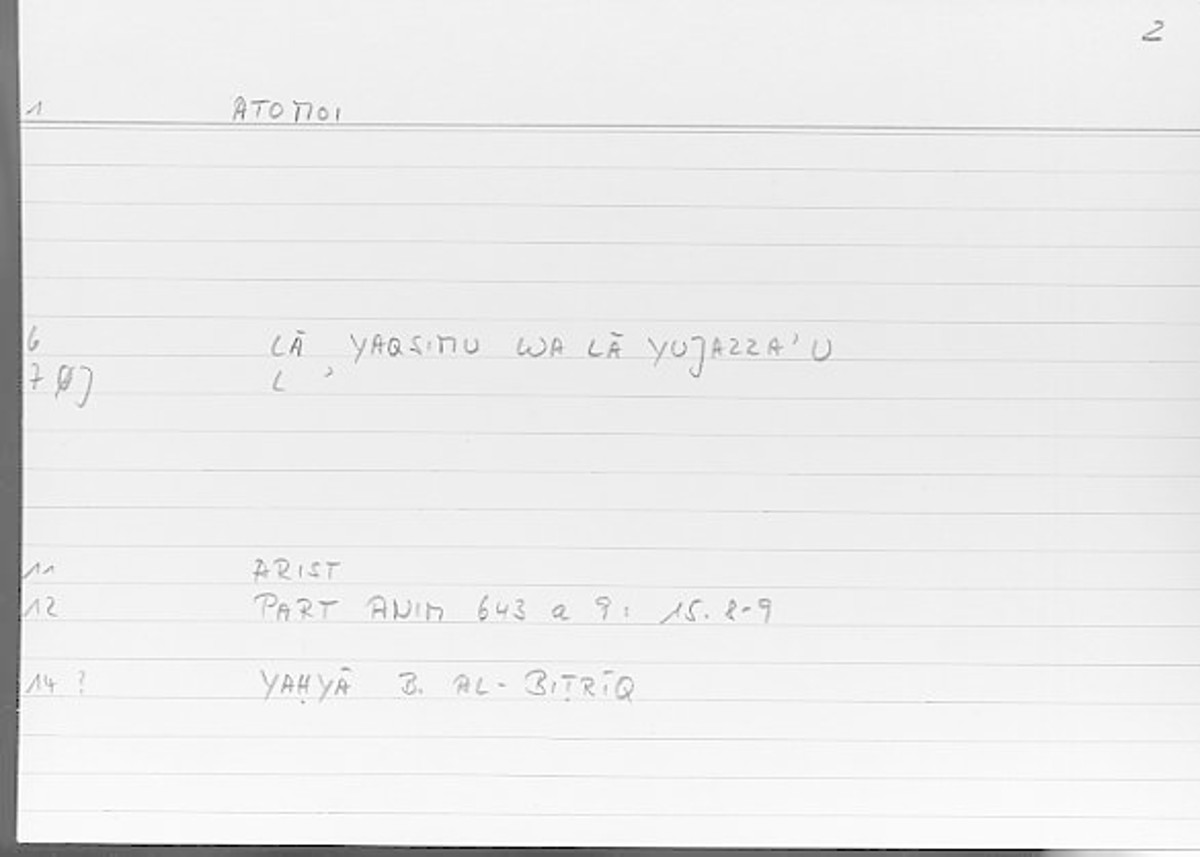 2
1 ATOMOI
6 LĀ YAQSIMU WA LĀ YUJAZZA'U
7 ØJ L ,
11 ARIST
12 PART ANIM 643 a 9 : 15. 8-9
14 ? YAḤYĀ B. AL-BIṬRĪQ